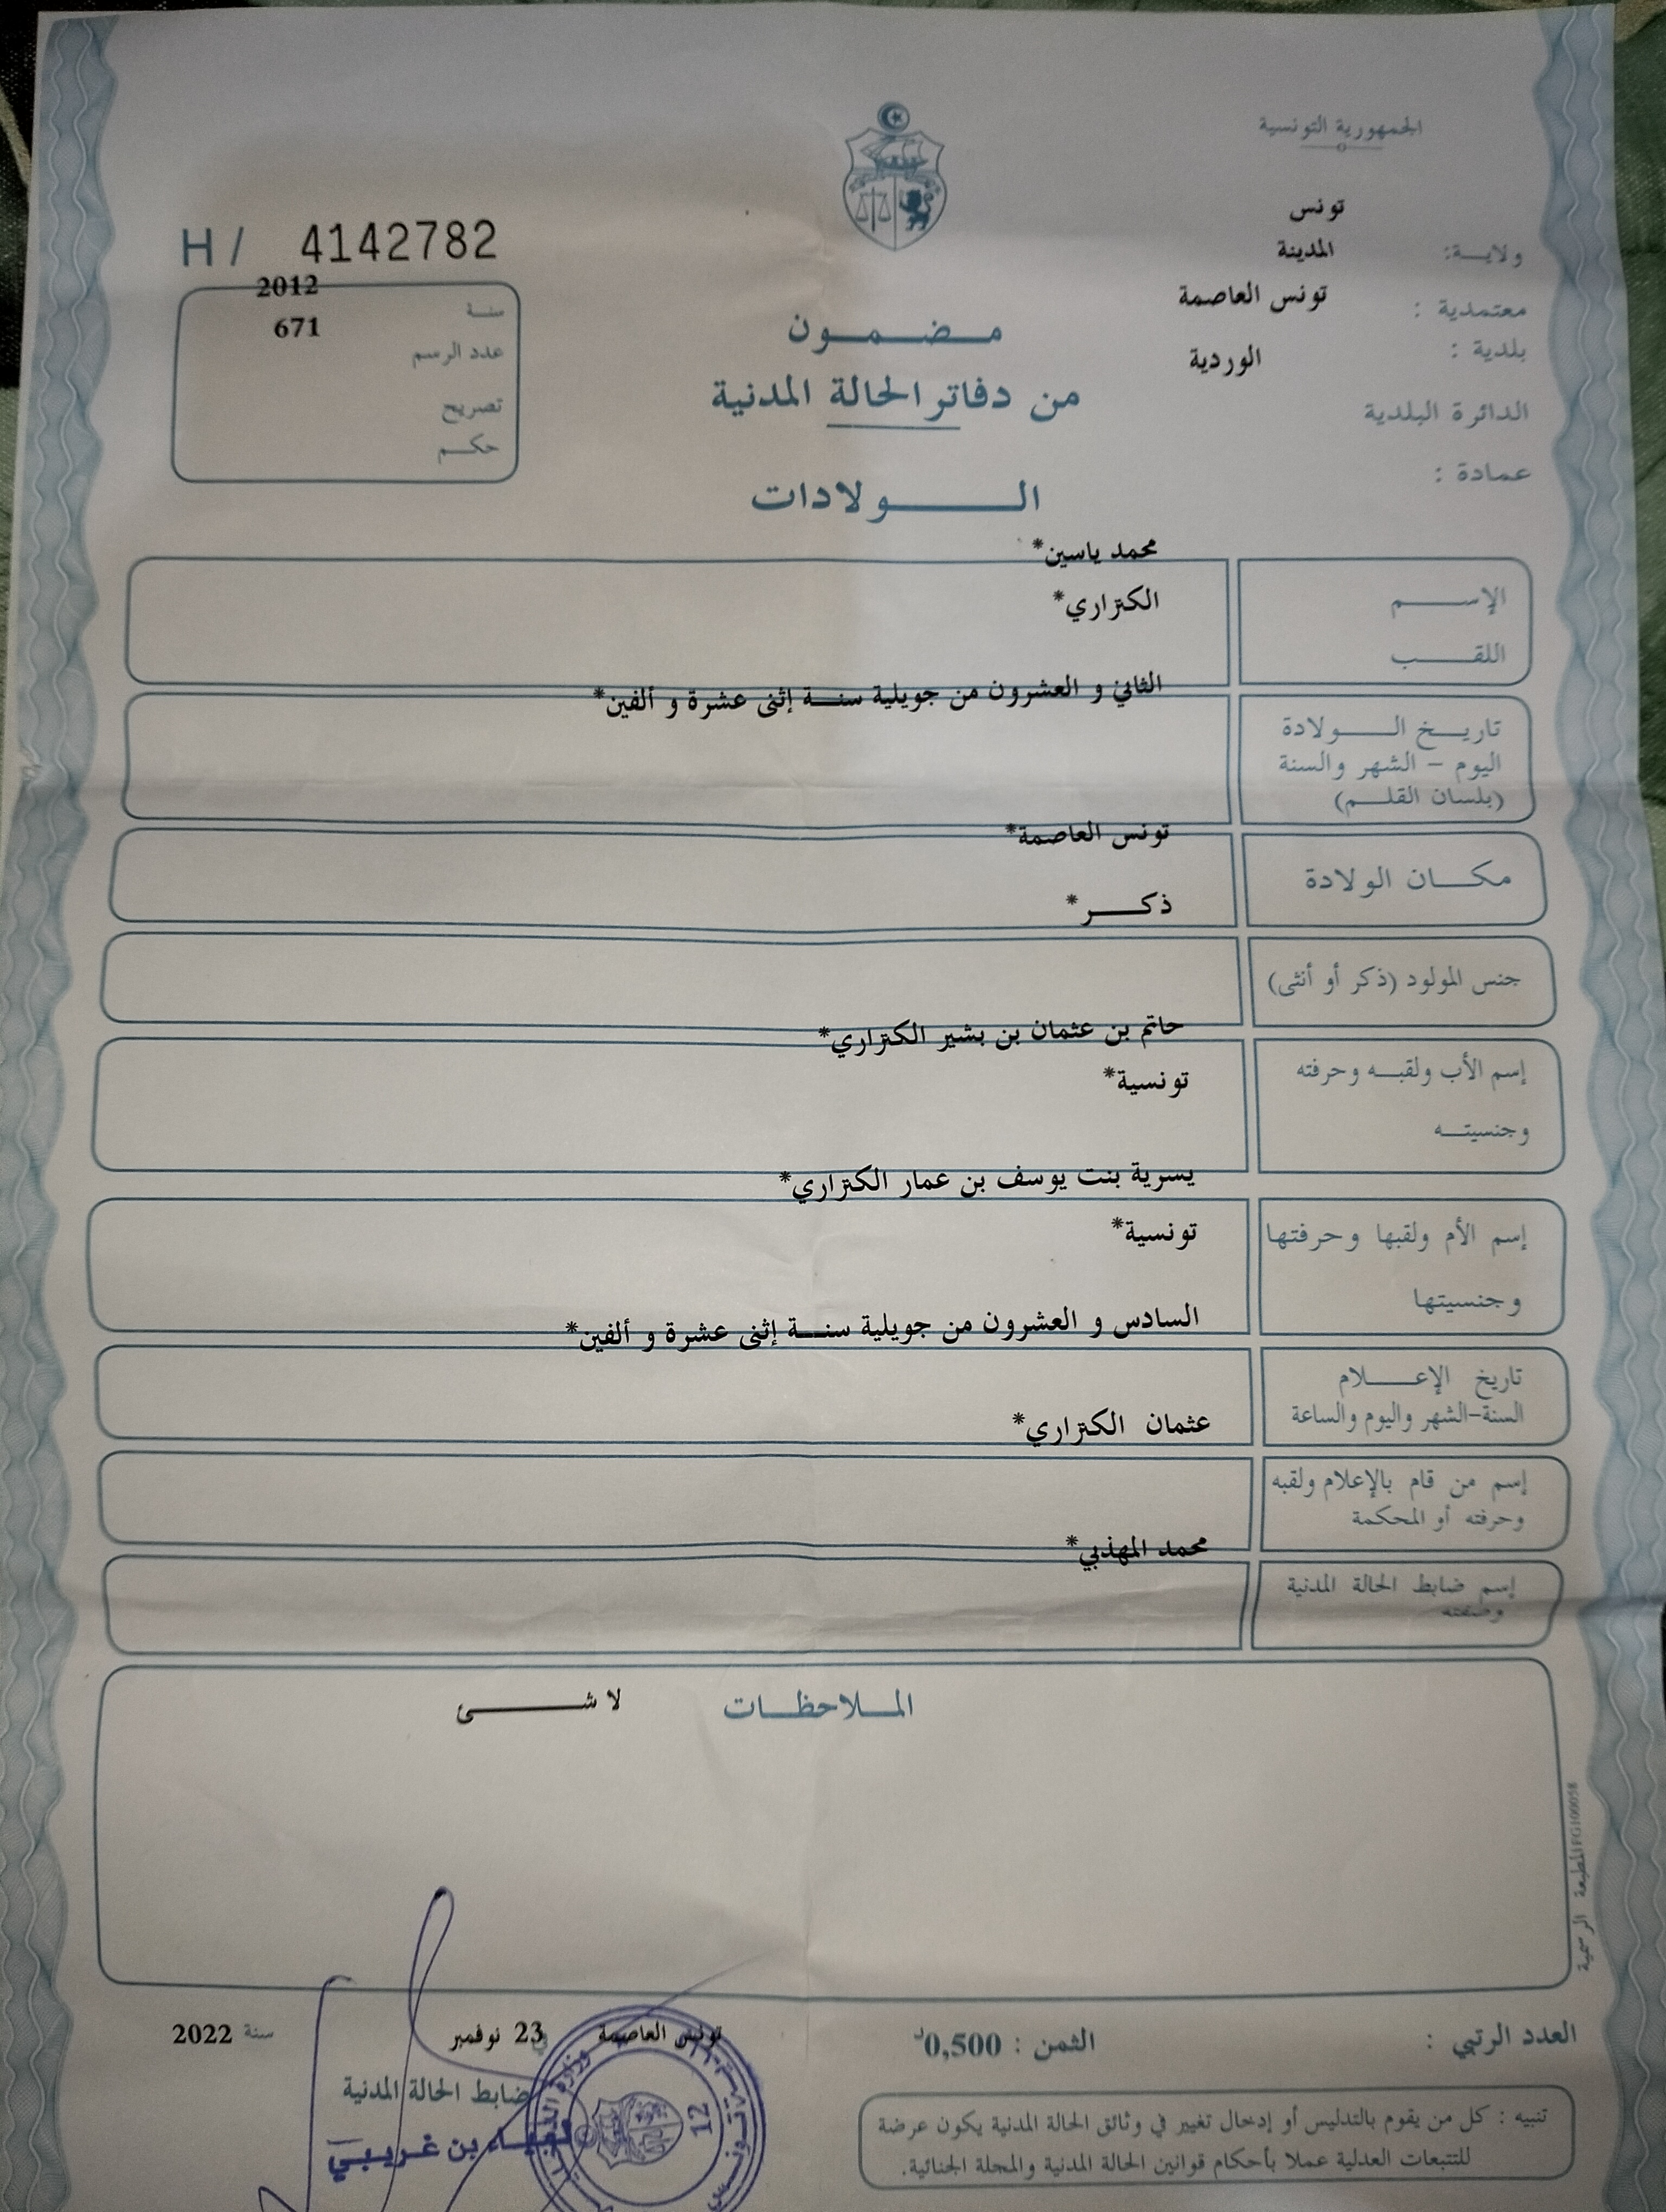 الجمهورية التونسية
تونس
ولايـــة:
المدينة
معتمدية :
تونس العاصمة
بلدية :
الوردية
الدائرة البلدية
عمادة :
H / 4142782
2012
سنـة
671
عدد الرسم
تصريح
حكـــم
مـــضـــمـــون
من دفاتر الحالة المدنية
الــــــولادات
محمد ياسين*
الإســـــم
الكنزاري*
اللقـــــب
الثاني و العشرون من جويلية سنـــة إثنى عشرة و ألفين*
تاريــخ الـــــولادة
اليوم – الشهر والسنة
(بلسان القلـــم)
تونس العاصمة*
مكـــان الولادة
ذكـــــر*
جنس المولود (ذكر أو أنثى)
حاتم بن عثمان بن بشير الكنزاري*
إسم الأب ولقبــه وحرفته
تونسية*
وجنسيتــه
يسرية بنت يوسف بن عمار الكنزاري*
إسم الأم ولقبها وحرفتها
تونسية*
وجنسيتها
السادس و العشرون من جويلية سنـــة إثنى عشرة و ألفين*
تاريخ الإعـــــلام
السنة-الشهر واليوم والساعة
عثمان الكنزاري*
إسم من قام بالإعلام ولقبه
وحرفته أو المحكمة
محمد المهذبي*
إسم ضابط الحالة المدنية
وصفته
الملاحظـــات
لا شـــــــئ
المطبعة الرسمية FG100058
العدد الرتبي :
الثمن : 0,500د
تونس العاصمة
في 23 نوفمبر
سنة 2022
ضابط الحالة المدنية
بن غريبي
12
تنبيه : كل من يقوم بالتدليس أو إدخال تغيير في وثائق الحالة المدنية يكون عرضة
للتتبعات العدلية عملا بأحكام قوانين الحالة المدنية والمجلة الجنائية.